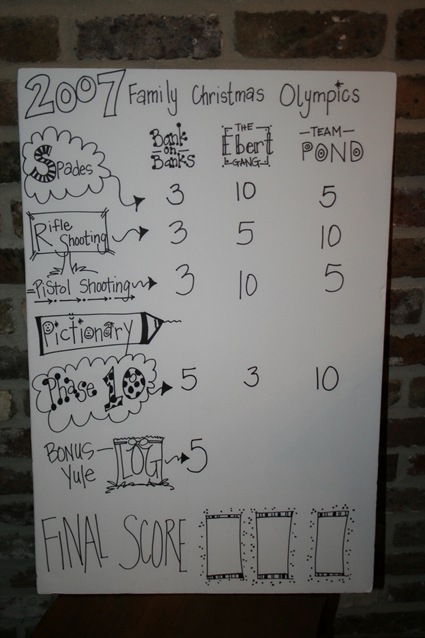 2007 Family Christmas Olympics
Bank on Banks
THE Ebert GANG
TEAM POND
Spades 3 10 5
Rifle Shooting 3 5 10
Pistol Shooting 3 10 5
Pictionary
Phase 10 5 3 10
BONUS Yule LOG 5
FINAL SCORE